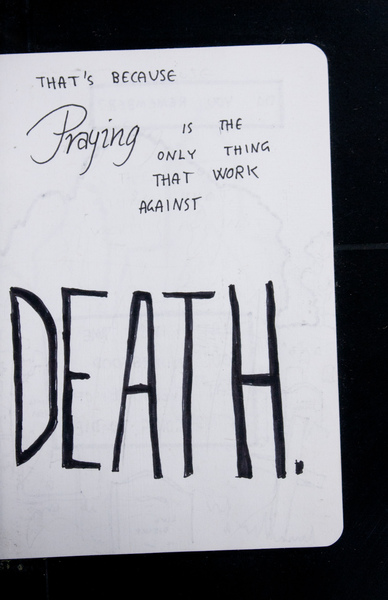 THAT'S BECAUSE
Praying IS THE
ONLY THING
THAT WORK
AGAINST
DEATH.